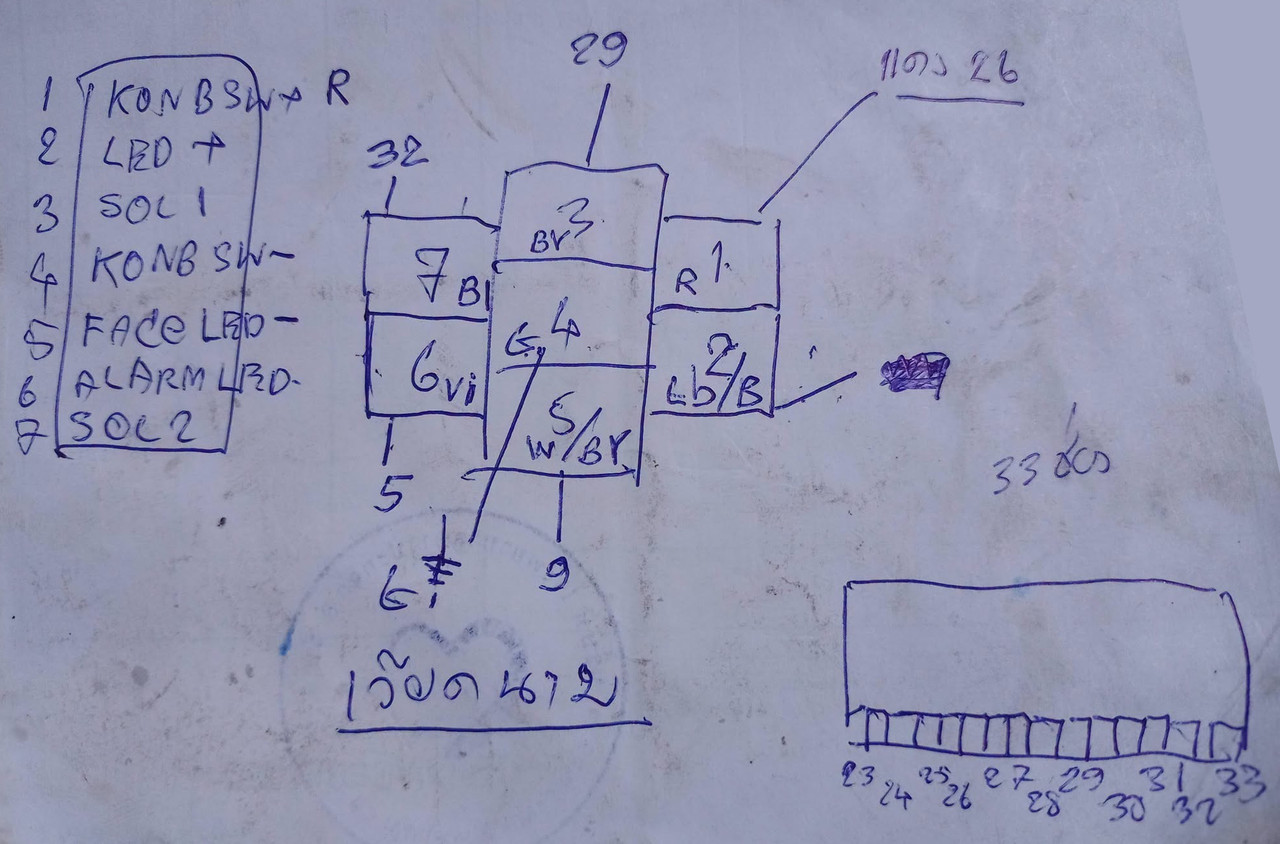 1 KONBSW+ R
2 LED +
3 SOL 1
4 KONB SW-
5 FACE LED -
6 ALARM LED-
7 SOL 2
29
แดง 26
32
3
Br
7 Bl
R 1
G 4
2
Lb/B
6 Vi
5
W/Br
5
G
9
เวียดนาม
33
23 24 25 26 27 28 29 30 31 32 33